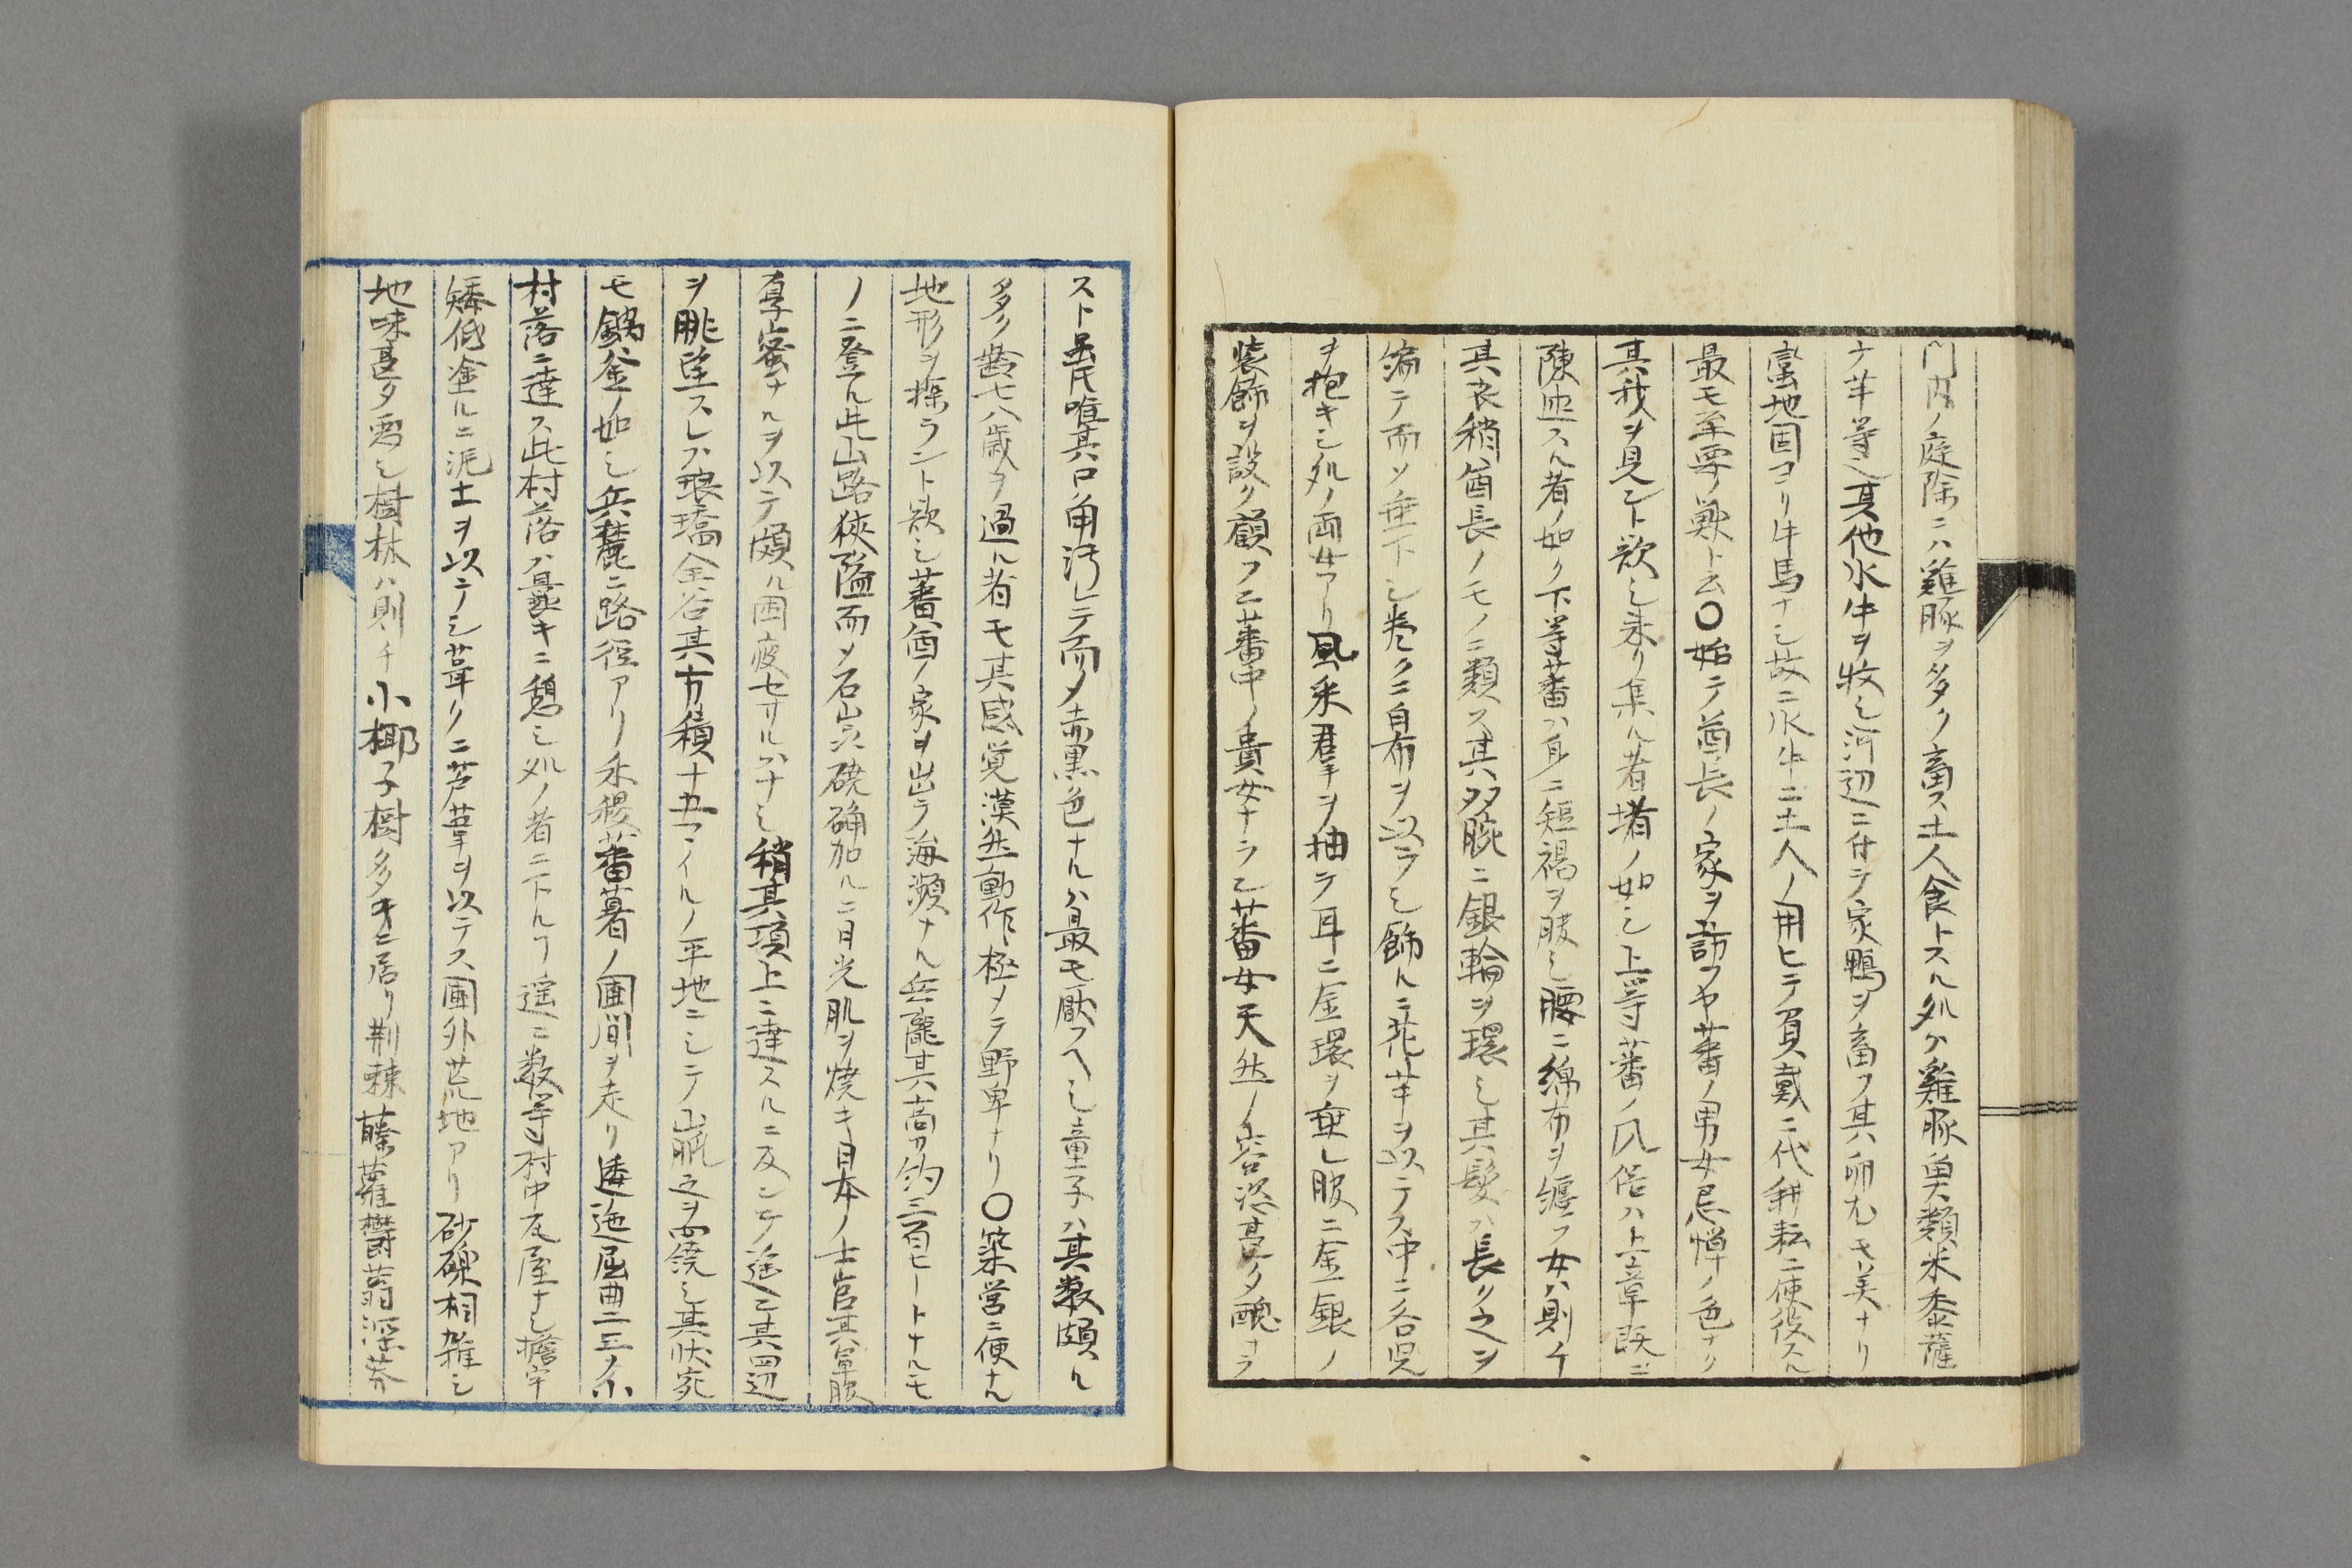 門内ノ庭除ニハ雞豚ヲ多ク畜ス土人食トスル処ケ雞豚魚類米黍薩
ナ芋等也其他水牛ヲ牧シ河辺ニ付テ家鴨ヲ畜フ其卵尤モ美ナリ
蛮地固ヨリ牛馬ナシ故ニ水牛ニ土人ノ用ヒテ負戴ニ代耕耘ニ使役スル
最モ至要ノ獣ト云〇始テ酋長ノ家ヲ訪フヤ蕃ノ男女忌憚ノ色ナク
其我人ヲ見ント欲シ来リ集ル者堵ノ如シ上等蕃ノ爪倍ハ上章既ニ
陳述スル者ノ如ク下等蕃ハ身ニ短褐ヲ服シ腰ニ綿布ヲ纒フ女ハ則チ
其衣稍酋長ノモノニ類ス其双腕ニ銀輪ヲ環シ其髪ハ長ク之ヲ
編テ而ソ垂下シ巻クニ白布ヲ以テシ飾ルニ花草ヲ以テス中ニ各児
ヲ抱キシ処ノ両女アリ風采群ヲ抽テ耳ニ金環ヲ垂レ服ニ金銀ノ
装飾ヲ設ク顧フニ蕃中ノ貴女ナラン蕃女天然ノ容姿甚タ醜ナラ
スト虽氏唯其口角汚レテ而メ赤黒色ナルハ最モ厭フヘシ童子ハ其数頗ル
多ク齢七八歳ヲ過ル者モ其感覚漠然動作極メテ野卑ナリ〇築営ニ便ナル
地形ヲ探ラント欲シ蕃酋ノ家ヲ出テ海瀕ナル丘隴其高サ約三百ヒートナルモ
ノニ登ル此山路狭隘而メ石尖磽确加ルニ日光肌ヲ焼キ日本ノ士官其軍服
厚蜜ナルヲ以テ頗ル困疲セサルハナシ稍其頂上ニ達スルニ及ンテ遥ニ其四辺
ヲ眺望スレハ琅璚全谷其方積十五マイルノ平地ニシテ山脈之ヲ囲繞シ其状宛
モ鍋釜ノ如シ丘麓ニ路径アリ禾稷蕃薯ノ圃間ヲ走リ逶迤屈曲二三ノ小
村落ニ達ス此村落ハ曩キニ憩シ処ノ者ニ下ルヿ遥ニ数等村中瓦屋ナシ檐宇
矮低塗ルニ泥土ヲ以テシ葺クニ芦葦ヲ以テス圃外荒地アリ砂礫相雑シ
地味甚タ悪シ樹林ハ則チ小椰子樹多キニ居リ荊棘藤蘿欝蓊深莽